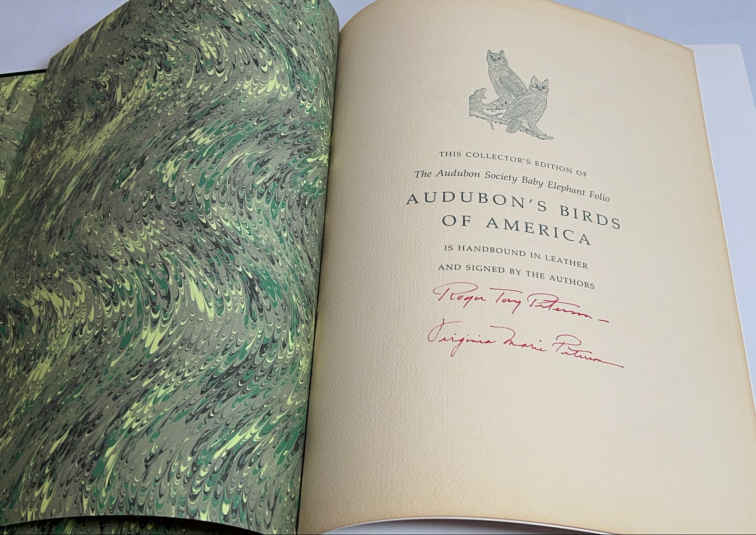 THIS COLLECTOR'S EDITION OF
The Audubon Society Baby Elephant Folio
AUDUBON'S BIRDS
OF AMERICA
IS HANDBOUND IN LEATHER
AND SIGNED BY THE AUTHORS
Roger Tory Peterson –
Virginia Marie Peterson